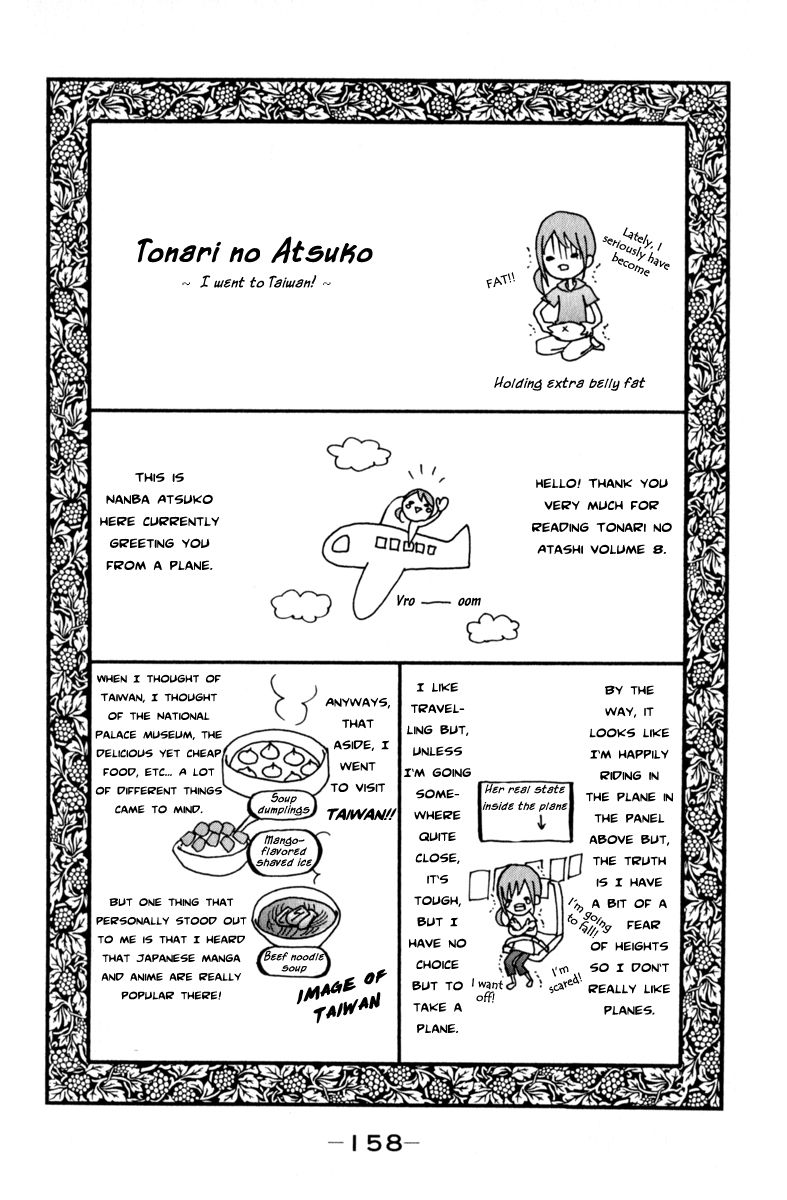 Tonari no Atsuko
~ I went to Taiwan! ~
Lately, I
seriously have
become
FAT!!
Holding extra belly fat
HELLO! THANK YOU
VERY MUCH FOR
READING TONARI NO
ATASHI VOLUME 8.
THIS IS
NANBA ATSUKO
HERE CURRENTLY
GREETING YOU
FROM A PLANE.
Vro — oom
BY THE
WAY, IT
LOOKS LIKE
I'M HAPPILY
RIDING IN
THE PLANE IN
THE PANEL
ABOVE BUT,
THE TRUTH
IS I HAVE
A BIT OF A
FEAR
OF HEIGHTS
SO I DON'T
REALLY LIKE
PLANES.
Her real state
inside the plane
I'm going
to fall!
I'm
scared!
I want
off!
I LIKE
TRAVEL-
LING BUT,
UNLESS
I'M GOING
SOME-
WHERE
QUITE
CLOSE,
IT'S
TOUGH,
BUT I
HAVE NO
CHOICE
BUT TO
TAKE A
PLANE.
ANYWAYS,
THAT
ASIDE, I
WENT
TO VISIT
TAIWAN!!
Soup
dumplings
Mango-
flavored
shaved ice
Beef noodle
soup
IMAGE OF
TAIWAN
WHEN I THOUGHT OF
TAIWAN, I THOUGHT
OF THE NATIONAL
PALACE MUSEUM, THE
DELICIOUS YET CHEAP
FOOD, ETC... A LOT
OF DIFFERENT THINGS
CAME TO MIND.
BUT ONE THING THAT
PERSONALLY STOOD OUT
TO ME IS THAT I HEARD
THAT JAPANESE MANGA
AND ANIME ARE REALLY
POPULAR THERE!
—158—